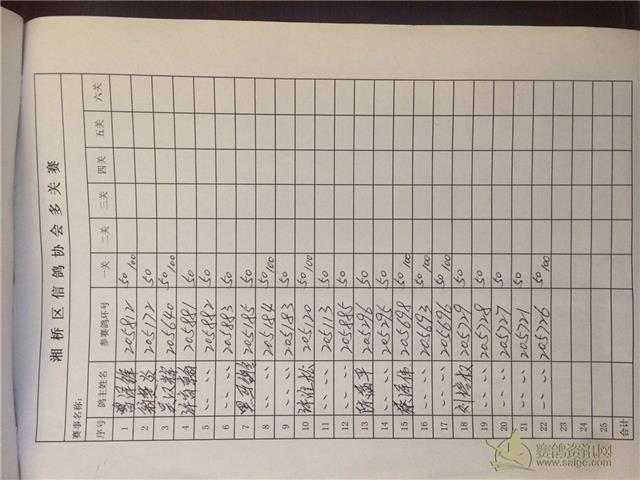 湘桥区信鸽协会多关赛
赛事名称:
序号 鸽主姓名 参赛鸽环号 一关 二关 三关 四关 五关 六关
1 205812 50 100
2 205172 50
3 吴汉辉 205640 50 100
4 205881 50
5 〃 〃 205882 50
6 〃 〃 205883 50
7 205185 50
8 〃 〃 205184 50 100
9 〃 〃 205183 50
10 许淮松 205120 50 100
11 〃 〃 205113 50
12 〃 〃 205885 50
13 205296 50
14 〃 〃 205295 50
15 蔡泽伟 205698 50 100
16 〃 〃 205693 50 100
17 〃 〃 205696 50 100
18 刘楷权 205729 50 100
19 〃 〃 205728 50
20 〃 〃 205727 50
21 〃 〃 205721 50
22 〃 〃 205726 50 100
23
24
25
合计
赛鸽资讯网
www.saige.com